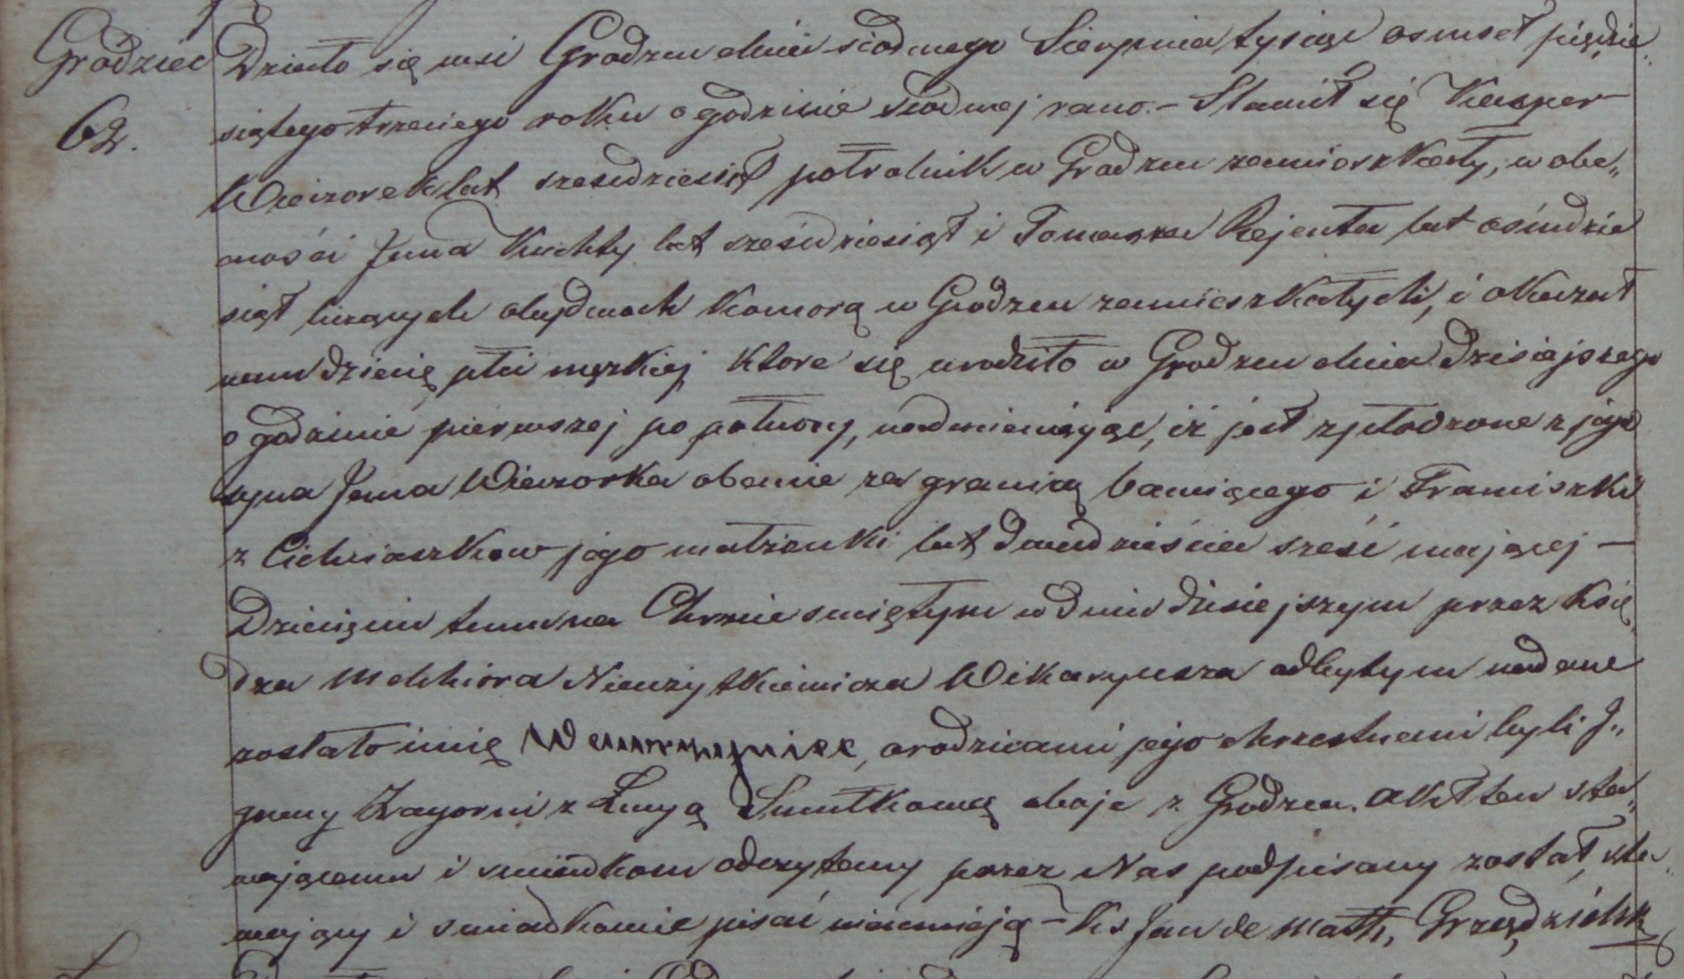 Grodziec
62.
Działo się wsi Grodzcu dnia siódmego Sierpnia tysiąc osmset pięćdzie„
siątego trzeciego roku o godzinie siodmej rano. – Stawił się Kasper
Wieczorek lat sześćdziesiąt półrolnik w Grodzcu zamieszkały, w obe„
cności Jana Kuchty lat sześćdziesiąt i Tomasza Rejenta lat ośmdzie
siąt liczących obydwoch komorą w Grodzcu zamieszkałych, i okazał
nam dziecię płci męzkiej które się urodziło w Grodzcu dnia dzisiejszego
o godzinie pierwszej po północy, nadmieniając, iż jest spłodzone z jego
syna Jana Wieczorka obecnie za granicą bawiącego i Franciszki
z Cichniaszkow jego małżonki lat dwadzieścia sześć mającej –
Dziecięciu temu na Chrzcie świętym w dniu dzisiejszym przez Księ„
dza Melchiora Wikaryusza odbytym nadane
zostało imię Wawrzyniec, a rodzicami jego chrzestnemi byli J„
gnacy Zagorni z Łucyą Smułkową oboje z Grodzca. Akt ten sta„
wającemu i swiadkom odczytany przez Nas podpisany został, sta„
wający i swiadkowie pisać nieumieją – Ks Jan de Math,